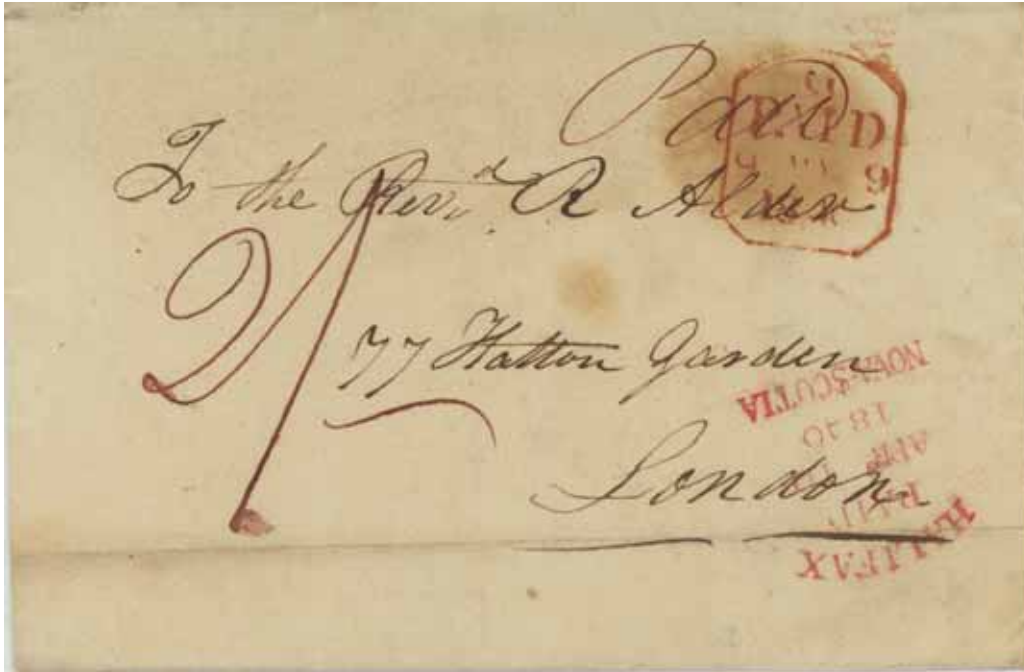 Paid
PAID
To the Revd. R Alder
2/
77 Hatton Garden
London
HALIFAX
APR
1840
NOVA SCOTIA